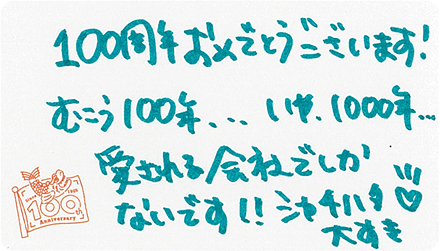 100周年おめでとうございます!
むこう100年... いや、1000年...
愛される会社でしか
ないです!! シャチハタ♡
大すき
100
Anniversary